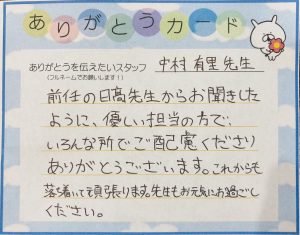 ありがとうカード
ありがとうを伝えたいスタッフ 中村 有里 先生
(フルネームでお願いします!)
前任の日高先生からお聞きした
ように、優しい担当の方で、
いろんな所でご配慮くださり
ありがとうございます。これからも
落ち着いて頑張ります。先生もお元気にお過ごし
ください。